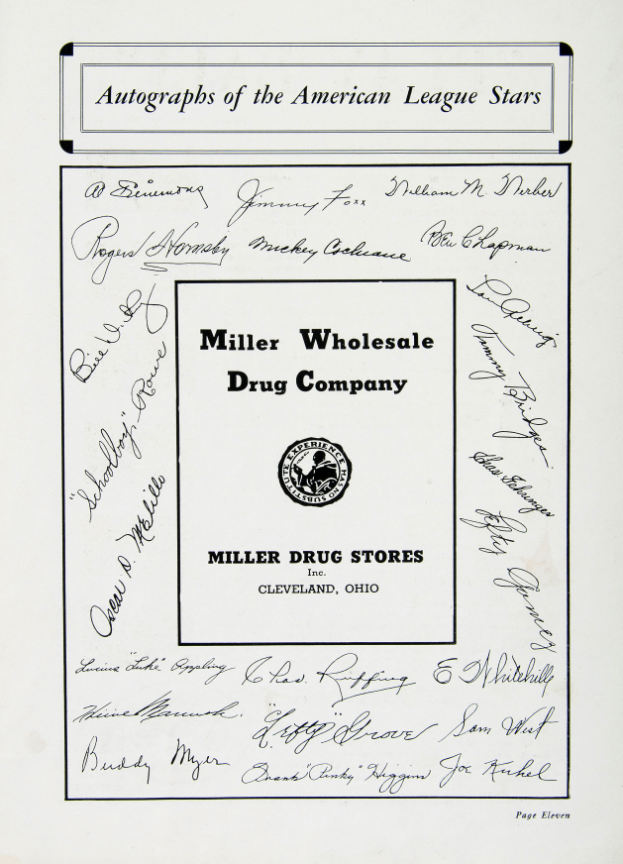 Autographs of the American League Stars
Al Simmons
Jimmy Foxx
William M Werber
Rogers Hornsby
Mickey Cochrane
Ben Chapman
Bill Dickey
Lou Gehrig
Miller Wholesale
Drug Company
Tommy Bridges
"Schoolboy" Rowe
EXPERIENCE HAS NO SUBSTITUTE
Chas Gehringer
Oscar D. Melillo
Lefty Gomez
MILLER DRUG STORES
Inc.
CLEVELAND, OHIO
Lucius "Luke" Appling
Chas. Ruffing
E Whitehill
Heinie Manush.
"Lefty" Grove
Sam West
Buddy Myer
Frank "Pinky" Higgins
Joe Kuhel
Page Eleven